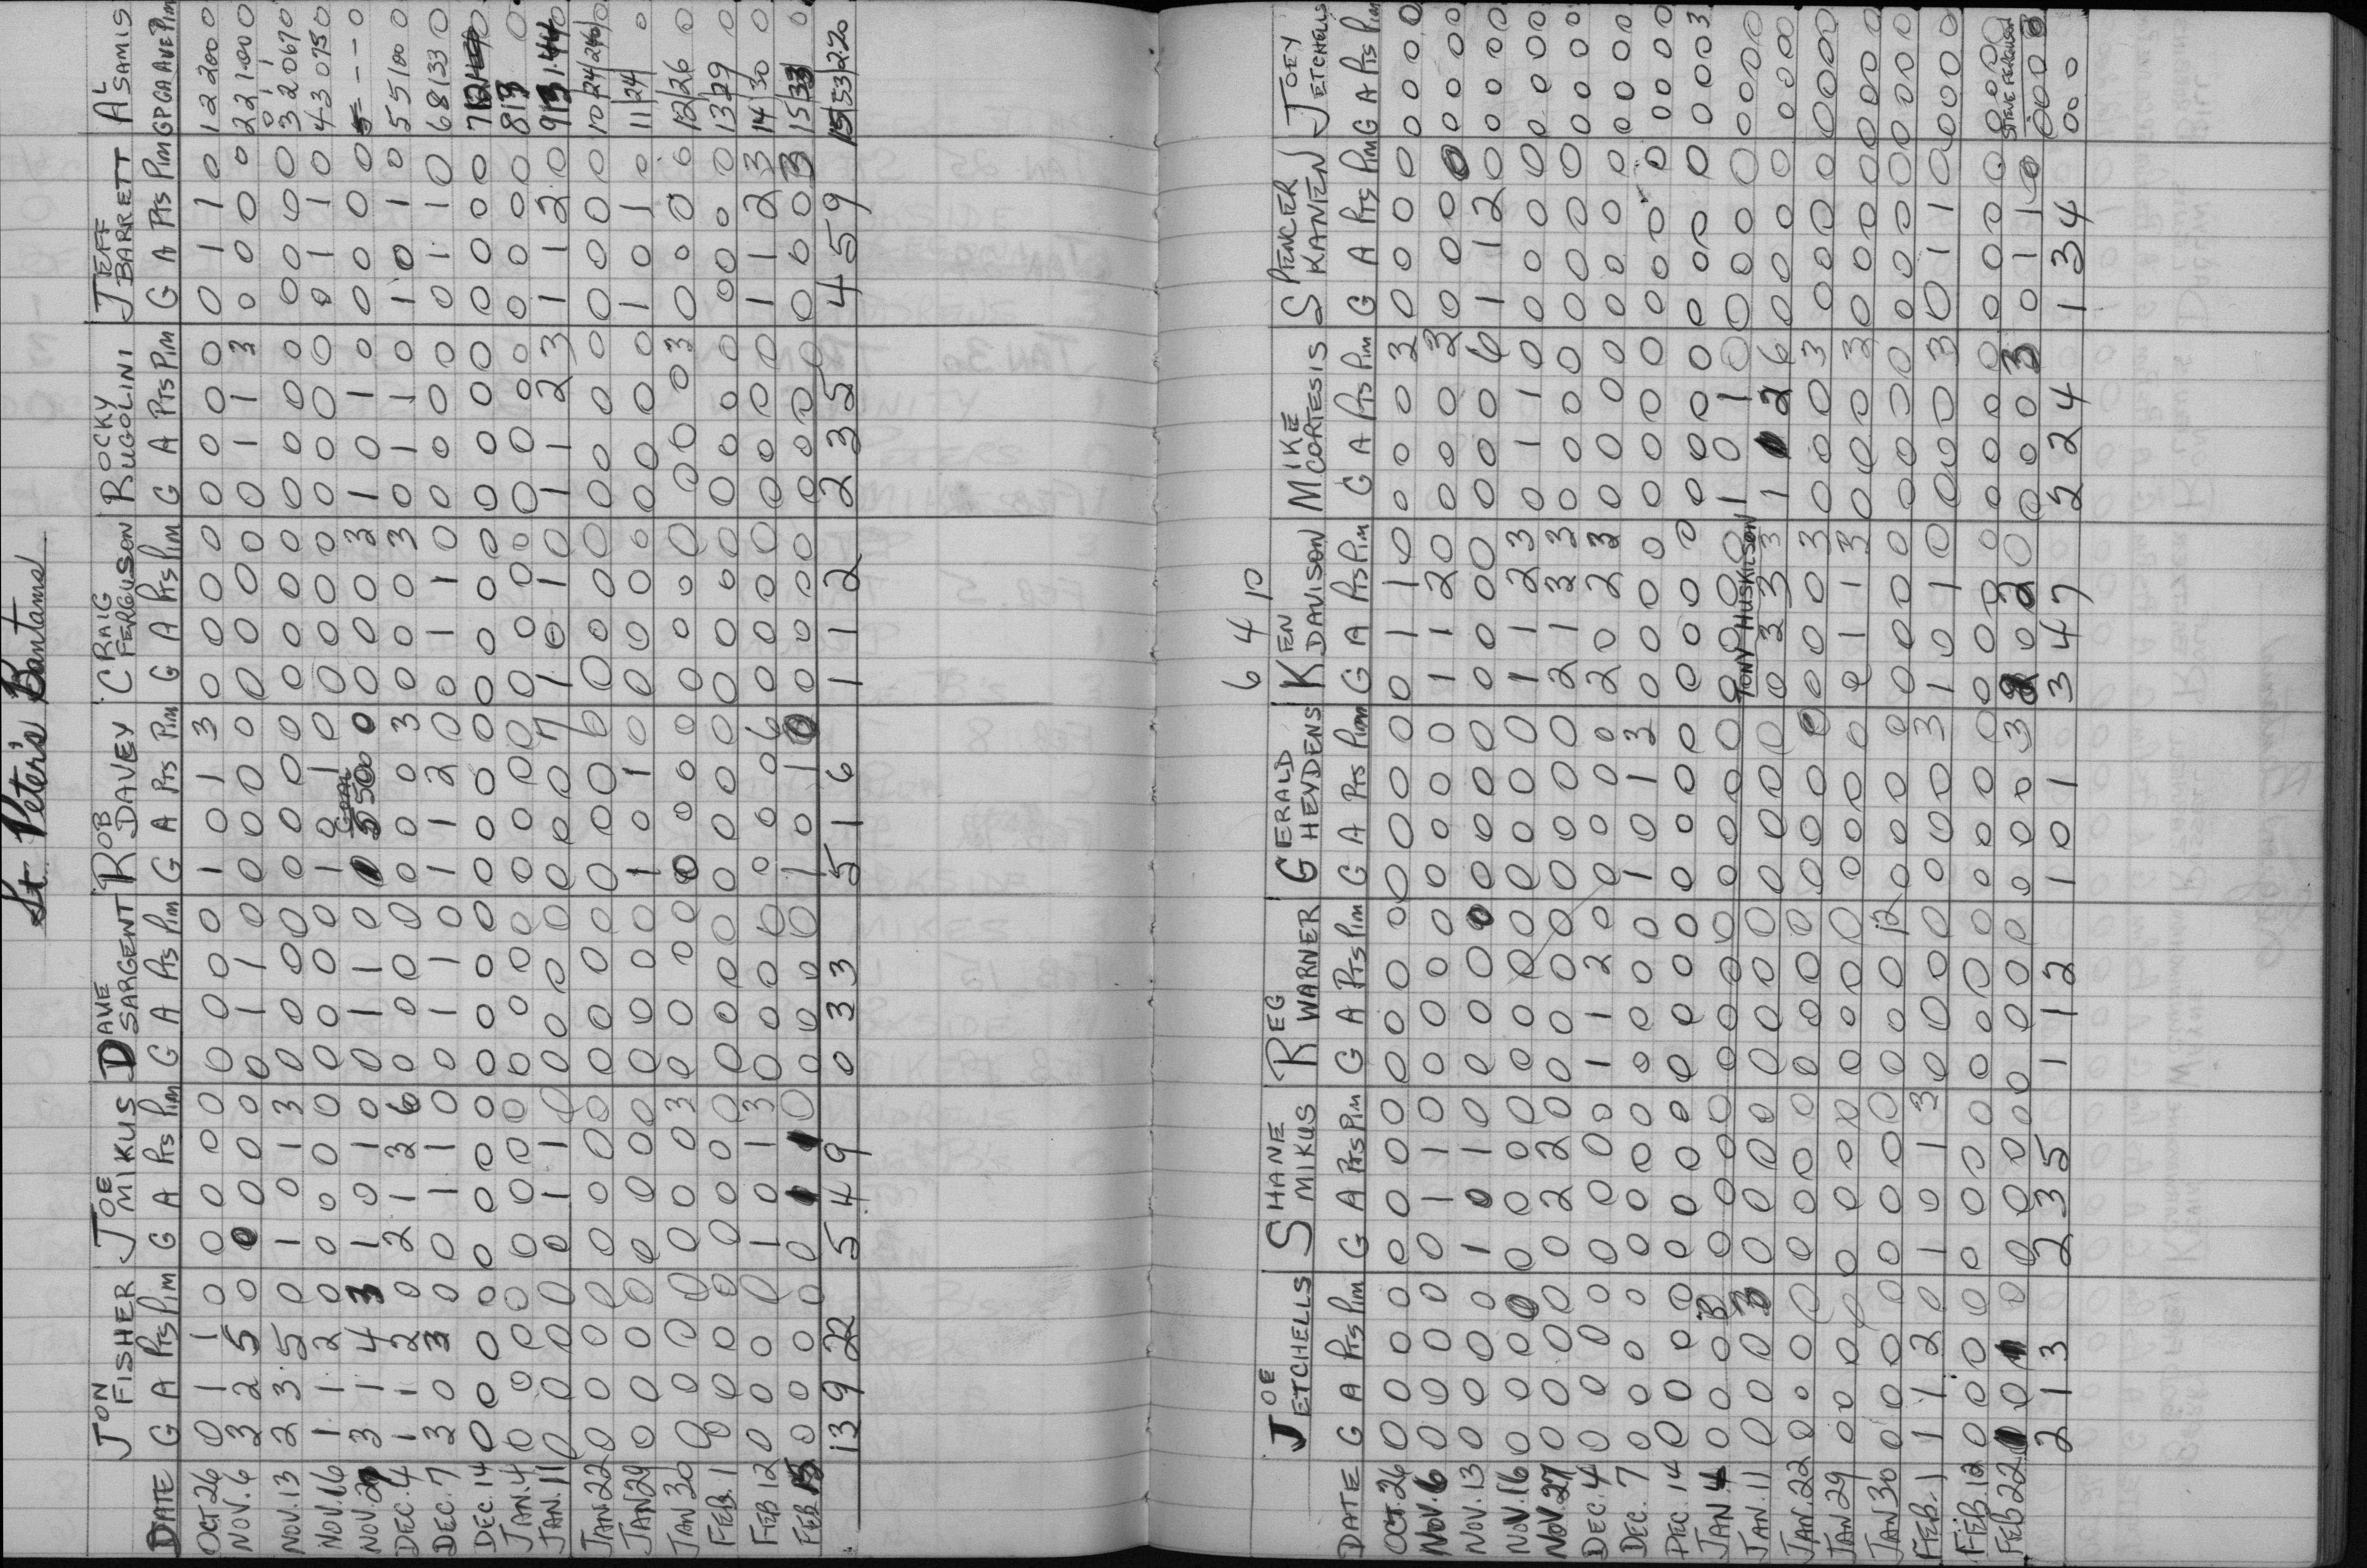 St. Peter's Bantams
JON FISHER JOE MIKUS DAVE SARGENT ROB DAVEY CRAIG FERGUSON ROCKY RUGOLINI JEFF BARRETT AL SAMIS
DATE G A Pts Pim G A Pts Pim G A Pts Pim G A Pts Pim G A Pts Pim G A Pts Pim G A Pts Pim GP GA AVE Pim
OCT 26 0 1 1 0 0 0 0 0 0 0 0 0 1 0 1 3 0 0 0 0 0 0 0 0 0 1 1 0 1 2 200 0
NOV. 6 3 2 5 0 0 0 0 0 0 1 1 0 0 0 0 0 0 0 0 0 0 1 1 3 0 0 0 0 2 2 1.00 0
0 1 1
NOV. 13 2 3 5 0 1 0 1 3 0 0 0 0 0 0 0 0 0 0 0 0 0 0 0 0 0 0 0 0 3 2 067 0
NOV. 16 1 1 2 0 0 0 0 0 0 0 0 0 1 0 1 0 0 0 0 0 0 0 0 0 0 1 1 0 4 3 075 0
GOAL
NOV. 27 3 1 4 3 1 0 1 0 0 1 1 0 5 500 0 0 0 0 3 1 0 1 0 0 0 0 0 - - 0
DEC. 4 1 1 2 0 2 1 3 6 0 0 0 0 0 0 0 3 0 0 0 3 0 1 1 0 1 0 1 0 5 5 100 0
DEC. 7 3 0 3 0 0 1 1 0 0 1 1 0 1 1 2 0 0 1 1 0 0 0 0 0 0 1 1 0 6 8 133 0
DEC. 14 0 0 0 0 0 0 0 0 0 0 0 0 0 0 0 0 0 0 0 0 0 0 0 0 0 0 0 0 7 12 0
JAN. 4 0 0 0 0 0 0 0 0 0 0 0 0 0 0 0 0 0 0 0 0 0 0 0 0 0 0 0 0 8 13 0
JAN. 11 0 0 0 0 0 1 1 0 0 0 0 0 0 0 0 7 1 0 1 0 1 1 2 3 1 1 2 0 9 13 1.44 0
JAN. 22 0 0 0 0 0 0 0 0 0 0 0 0 0 0 0 0 0 0 0 0 0 0 0 0 0 0 0 0 10 24 240 0
JAN 29 0 0 0 0 0 0 0 0 0 0 0 0 1 0 1 0 0 0 0 0 0 0 0 0 1 0 1 0 11 24 0
JAN 30 0 0 0 0 0 0 0 3 0 0 0 0 0 0 0 0 0 0 0 0 0 0 0 3 0 0 0 0 12 26 0
FEB. 1 0 0 0 0 0 0 0 0 0 0 0 0 0 0 0 0 0 0 0 0 0 0 0 0 0 0 0 0 13 29 0
FEB 12 0 0 0 0 1 0 1 3 0 0 0 0 0 0 0 6 0 0 0 0 0 0 0 0 1 1 2 3 14 30 0
FEB 15 0 0 0 0 0 1 1 0 0 0 0 0 1 0 1 0 0 0 0 0 0 0 0 0 0 0 0 3 15 33 0
13 9 22 5 4 9 0 3 3 5 1 6 1 1 2 2 3 5 4 5 9 15 53 2.20
6 4 10
JOE ETCHELLS SHANE MIKUS REG WARNER GERALD HEYDENS KEN DAVISON MIKE CORTESIS SPENCER KANEN JOEY ETCHELLS
DATE G A Pts Pim G A Pts Pim G A Pts Pim G A Pts Pim G A Pts Pim G A Pts Pim G A Pts Pim G A Pts Pim
OCT. 26 0 0 0 0 0 0 0 0 0 0 0 0 0 0 0 0 0 1 1 0 0 0 0 3 0 0 0 0 0 0 0 0
NOV. 6 0 0 0 0 0 1 1 0 0 0 0 0 0 0 0 0 1 1 2 0 0 0 0 3 0 0 0 0 0 0 0 0
NOV. 13 0 0 0 0 1 0 1 0 0 0 0 0 0 0 0 0 0 0 0 0 0 0 0 6 1 1 2 0 0 0 0 0
NOV. 16 0 0 0 0 0 0 0 0 0 0 0 0 0 0 0 0 1 1 2 3 0 1 1 0 0 0 0 0 0 0 0 0
NOV. 27 0 0 0 0 0 2 2 0 0 0 0 0 0 0 0 0 2 1 3 3 0 0 0 0 0 0 0 0 0 0 0 0
DEC. 4 0 0 0 0 0 0 0 0 1 1 2 0 0 0 0 0 2 0 2 3 0 0 0 0 0 0 0 0 0 0 0 0
DEC. 7 0 0 0 0 0 0 0 0 0 0 0 0 1 0 1 3 0 0 0 0 0 0 0 0 0 0 0 0 0 0 0 0
DEC. 14 0 0 0 0 0 0 0 0 0 0 0 0 0 0 0 0 0 0 0 0 0 0 0 0 0 0 0 0 0 0 0 3
JAN 4 0 0 0 3 0 0 0 0 0 0 0 0 0 0 0 0 0 0 0 0 1 0 1 0 0 0 0 0 0 0 0 0
TONY HUSKILSON
JAN. 11 0 0 0 3 0 0 0 0 0 0 0 0 0 0 0 0 0 3 3 3 1 1 2 6 0 0 0 0 0 0 0 0
JAN. 22 0 0 0 0 0 0 0 0 0 0 0 0 0 0 0 0 0 0 0 3 0 0 0 3 0 0 0 0 0 0 0 0
JAN 29 0 0 0 0 0 0 0 0 0 0 0 0 0 0 0 0 0 1 1 3 0 0 0 3 0 0 0 0 0 0 0 0
JAN 30 0 0 0 0 0 0 0 0 0 0 0 12 0 0 0 0 0 0 0 0 0 0 0 0 0 0 0 0 0 0 0 0
FEB. 1 1 1 2 0 1 0 1 3 0 0 0 0 0 0 0 3 1 0 1 0 0 0 0 3 0 1 1 0 0 0 0 0
FEB. 12 0 0 0 0 0 0 0 0 0 0 0 0 0 0 0 0 0 0 0 0 0 0 0 0 0 0 0 0 0 0 0 0
STEVE FERGUSON
FEB 22 1 0 1 0 0 0 0 0 0 0 0 0 0 0 0 3 2 0 2 0 0 0 0 3 0 1 1 0 0 0 0
2 1 3 2 3 5 1 1 2 1 0 1 3 4 7 2 2 4 1 3 4 0 0 0